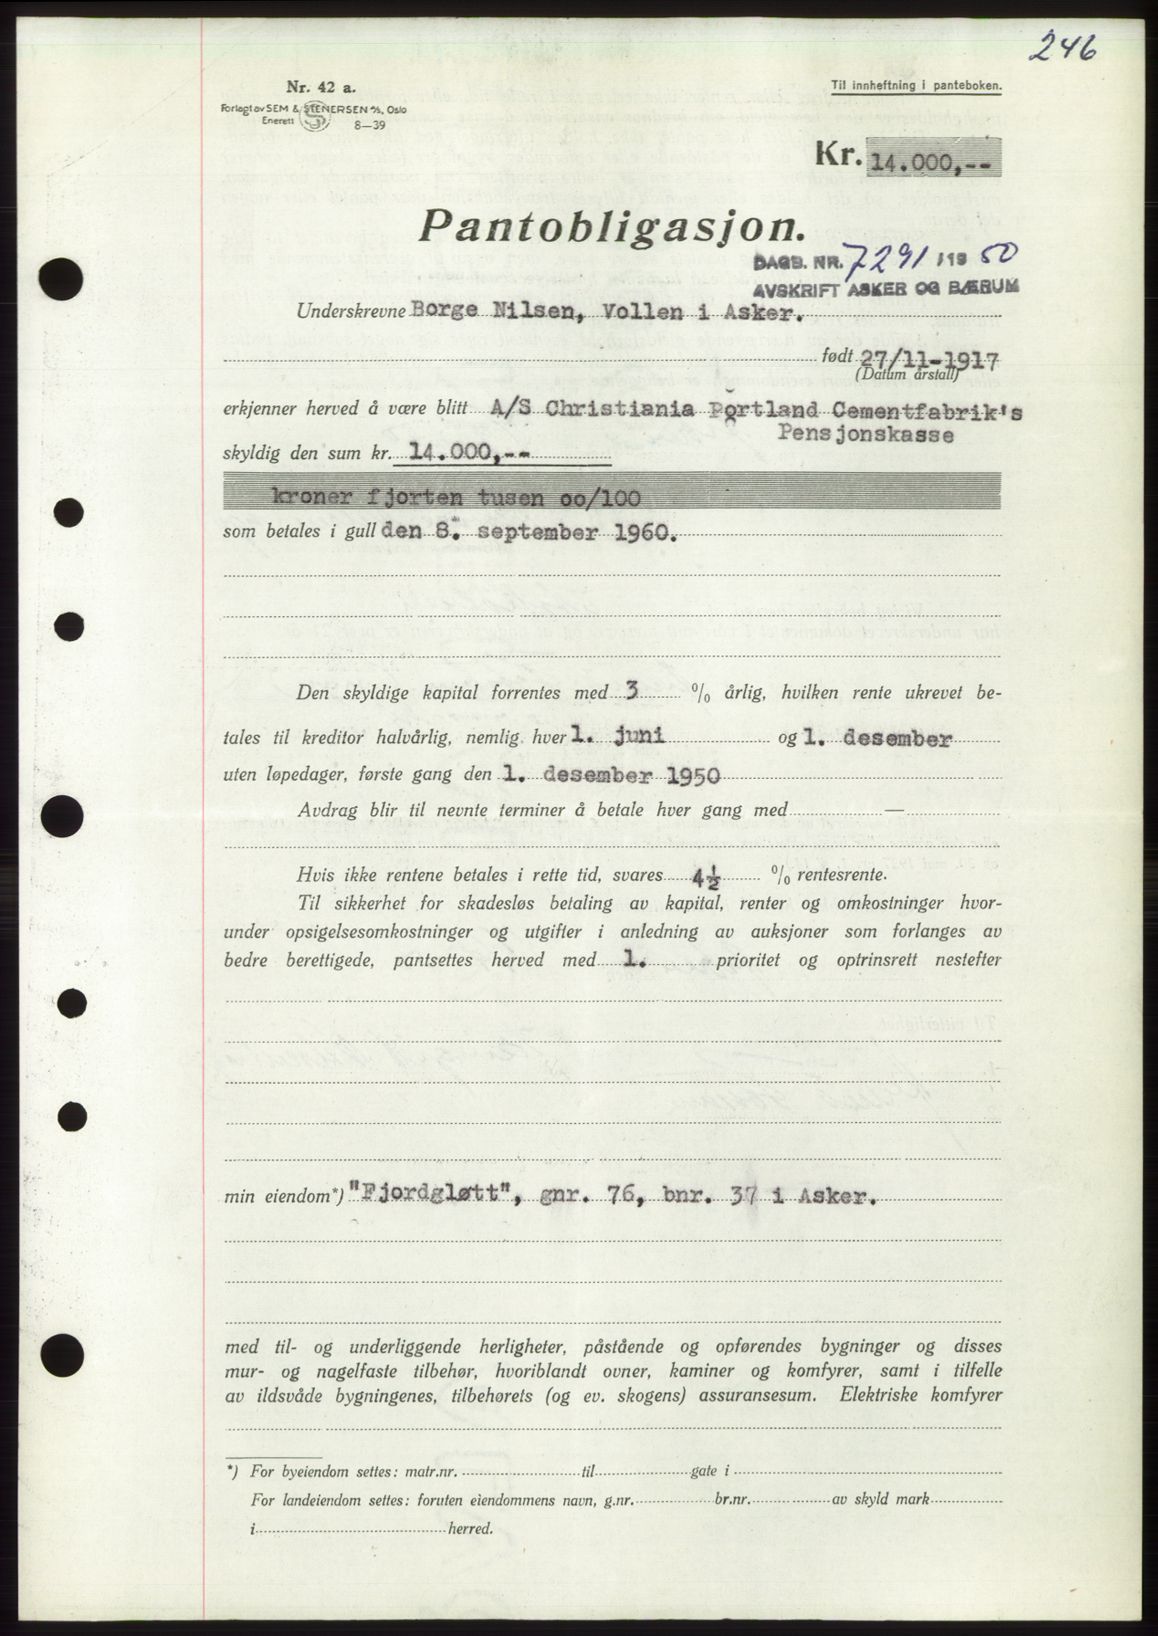 246
Nr. 42 a.
Til innheftning i panteboken.
Forlagt av SEM & STENERSEN A/S, Oslo
Enerett
8—39
Kr. 14.000,--
Pantobligasjon.
DAGB. NR. 7291/19 50
AVSKRIFT ASKER OG BÆRUM
Underskrevne Borge Nilsen, Vollen i Asker.
født 27/11-1917
(Datum årstall)
erkjenner herved å være blitt A/S Christiania Portland Cementfabrik's
Pensjonskasse
skyldig den sum kr. 14.000,--
kroner fjorten tusen oo/100
som betales i gull den 8. september 1960.
Den skyldige kapital forrentes med 3 % årlig, hvilken rente ukrevet be-
tales til kreditor halvårlig, nemlig hver 1. juni og 1. desember
uten løpedager, første gang den 1. desember 1950
Avdrag blir til nevnte terminer å betale hver gang med —
Hvis ikke rentene betales i rette tid, svares 4½ % rentesrente.
Til sikkerhet for skadesløs betaling av kapital, renter og omkostninger hvor-
under opsigelsesomkostninger og utgifter i anledning av auksjoner som forlanges av
bedre berettigede, pantsettes herved med 1. prioritet og optrinsrett nestefter
min eiendom*) "Fjordgløtt", gnr. 76, bnr. 37 i Asker.
med til- og underliggende herligheter, påstående og opførendes bygninger og disses
mur- og nagelfaste tilbehør, hvoriblandt ovner, kaminer og komfyrer, samt i tilfelle
av ildsvåde bygningenes, tilbehørets (og ev. skogens) assuransesum. Elektriske komfyrer
*) For byeiendom settes: matr.nr. til gate i
For landeiendom settes: foruten eiendommens navn, g.nr. br.nr. av skyld mark
i herred.